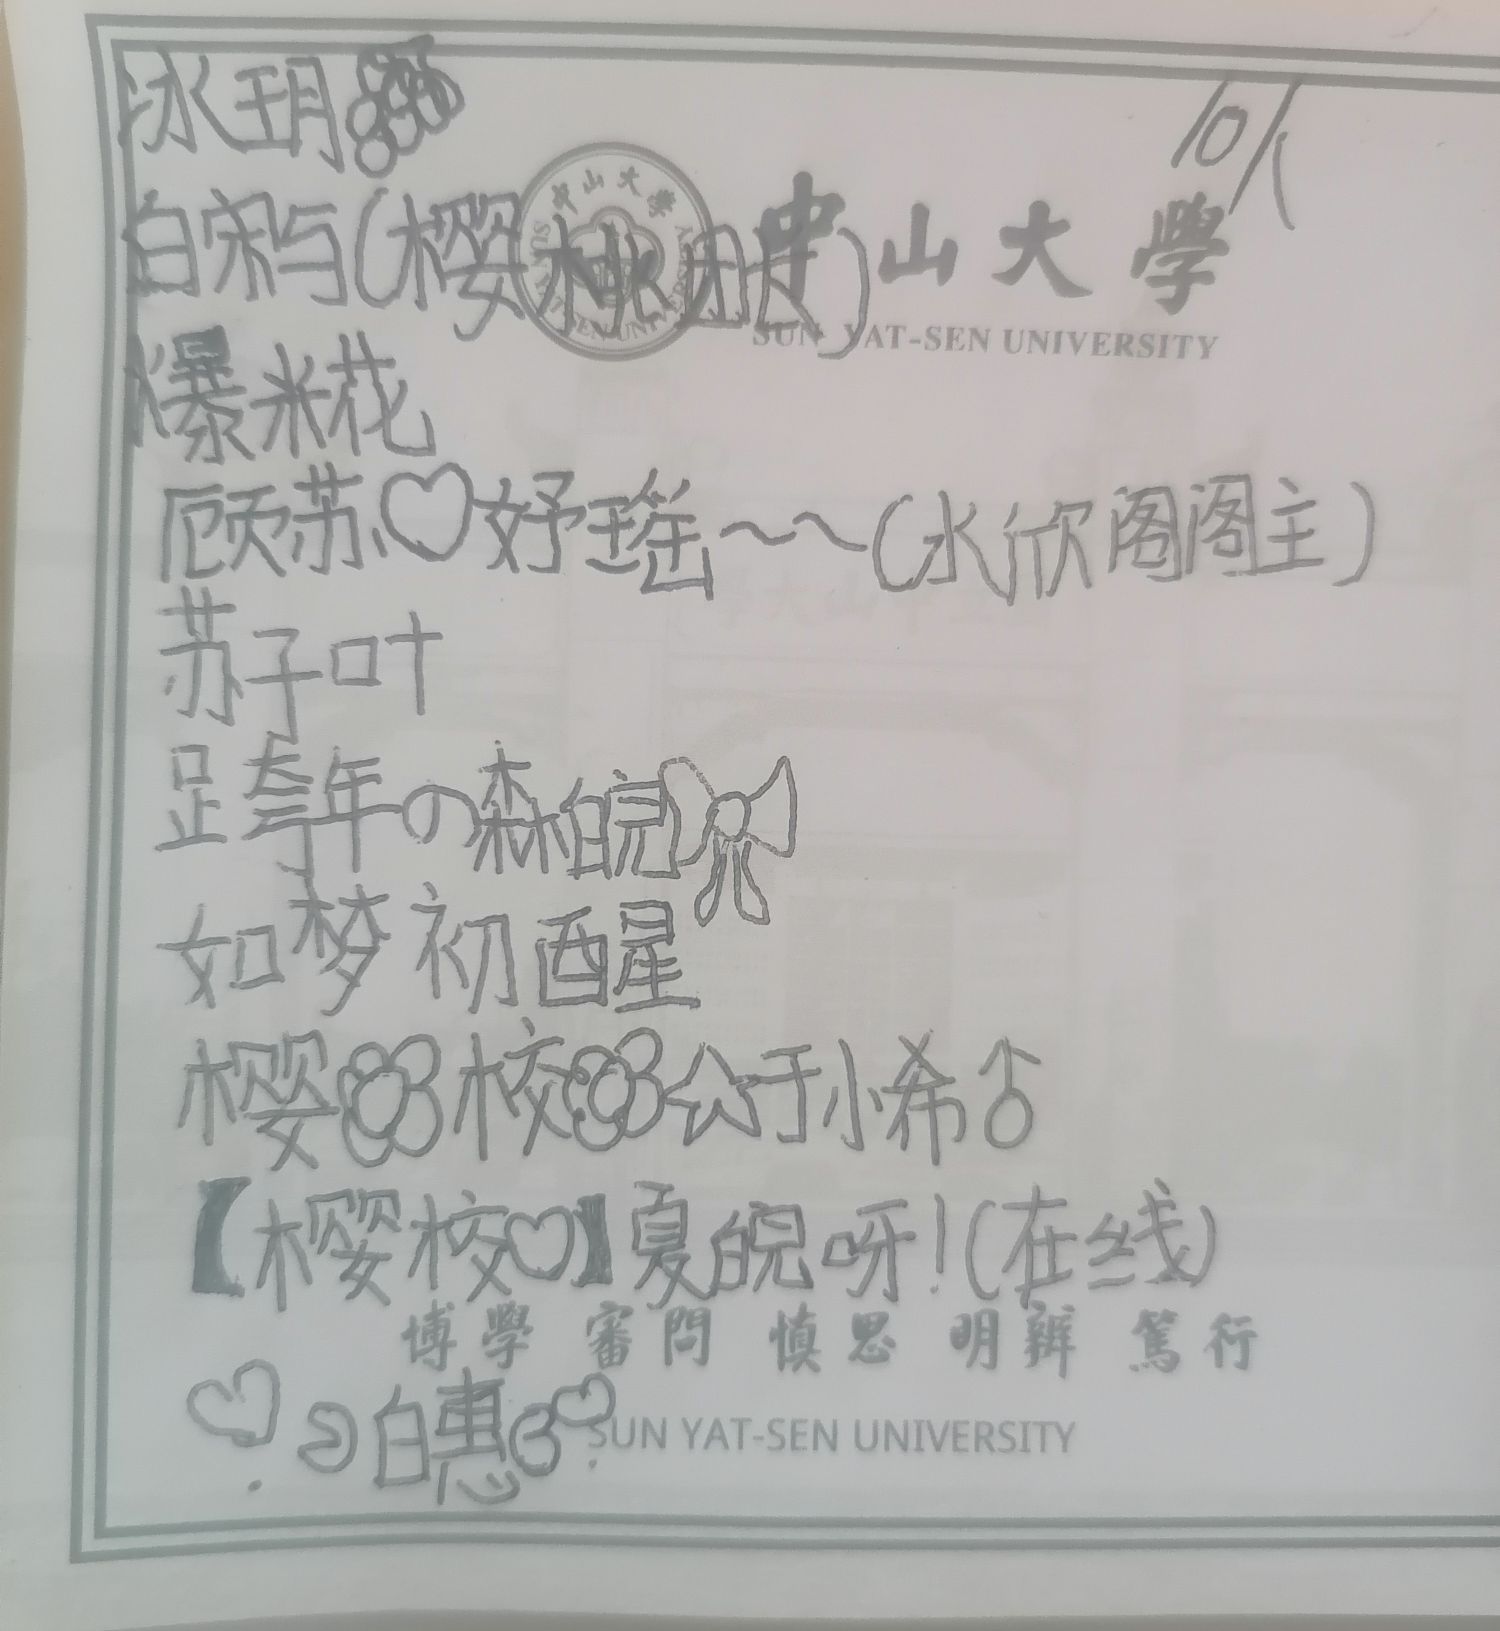 冰玥
10人
白宋与(樱桃团长)
中山大學
SUN YAT-SEN UNIVERSITY
爆米花
顾苏♡妤瑶～～(水欣阁阁主)
苏子叶
年の森皖
如梦初醒
樱校☆于小希♂
【樱校♡】夏皖呀!(在线)
博學 審問 慎思 明辨 篤行
♡白惠♡
SUN YAT-SEN UNIVERSITY